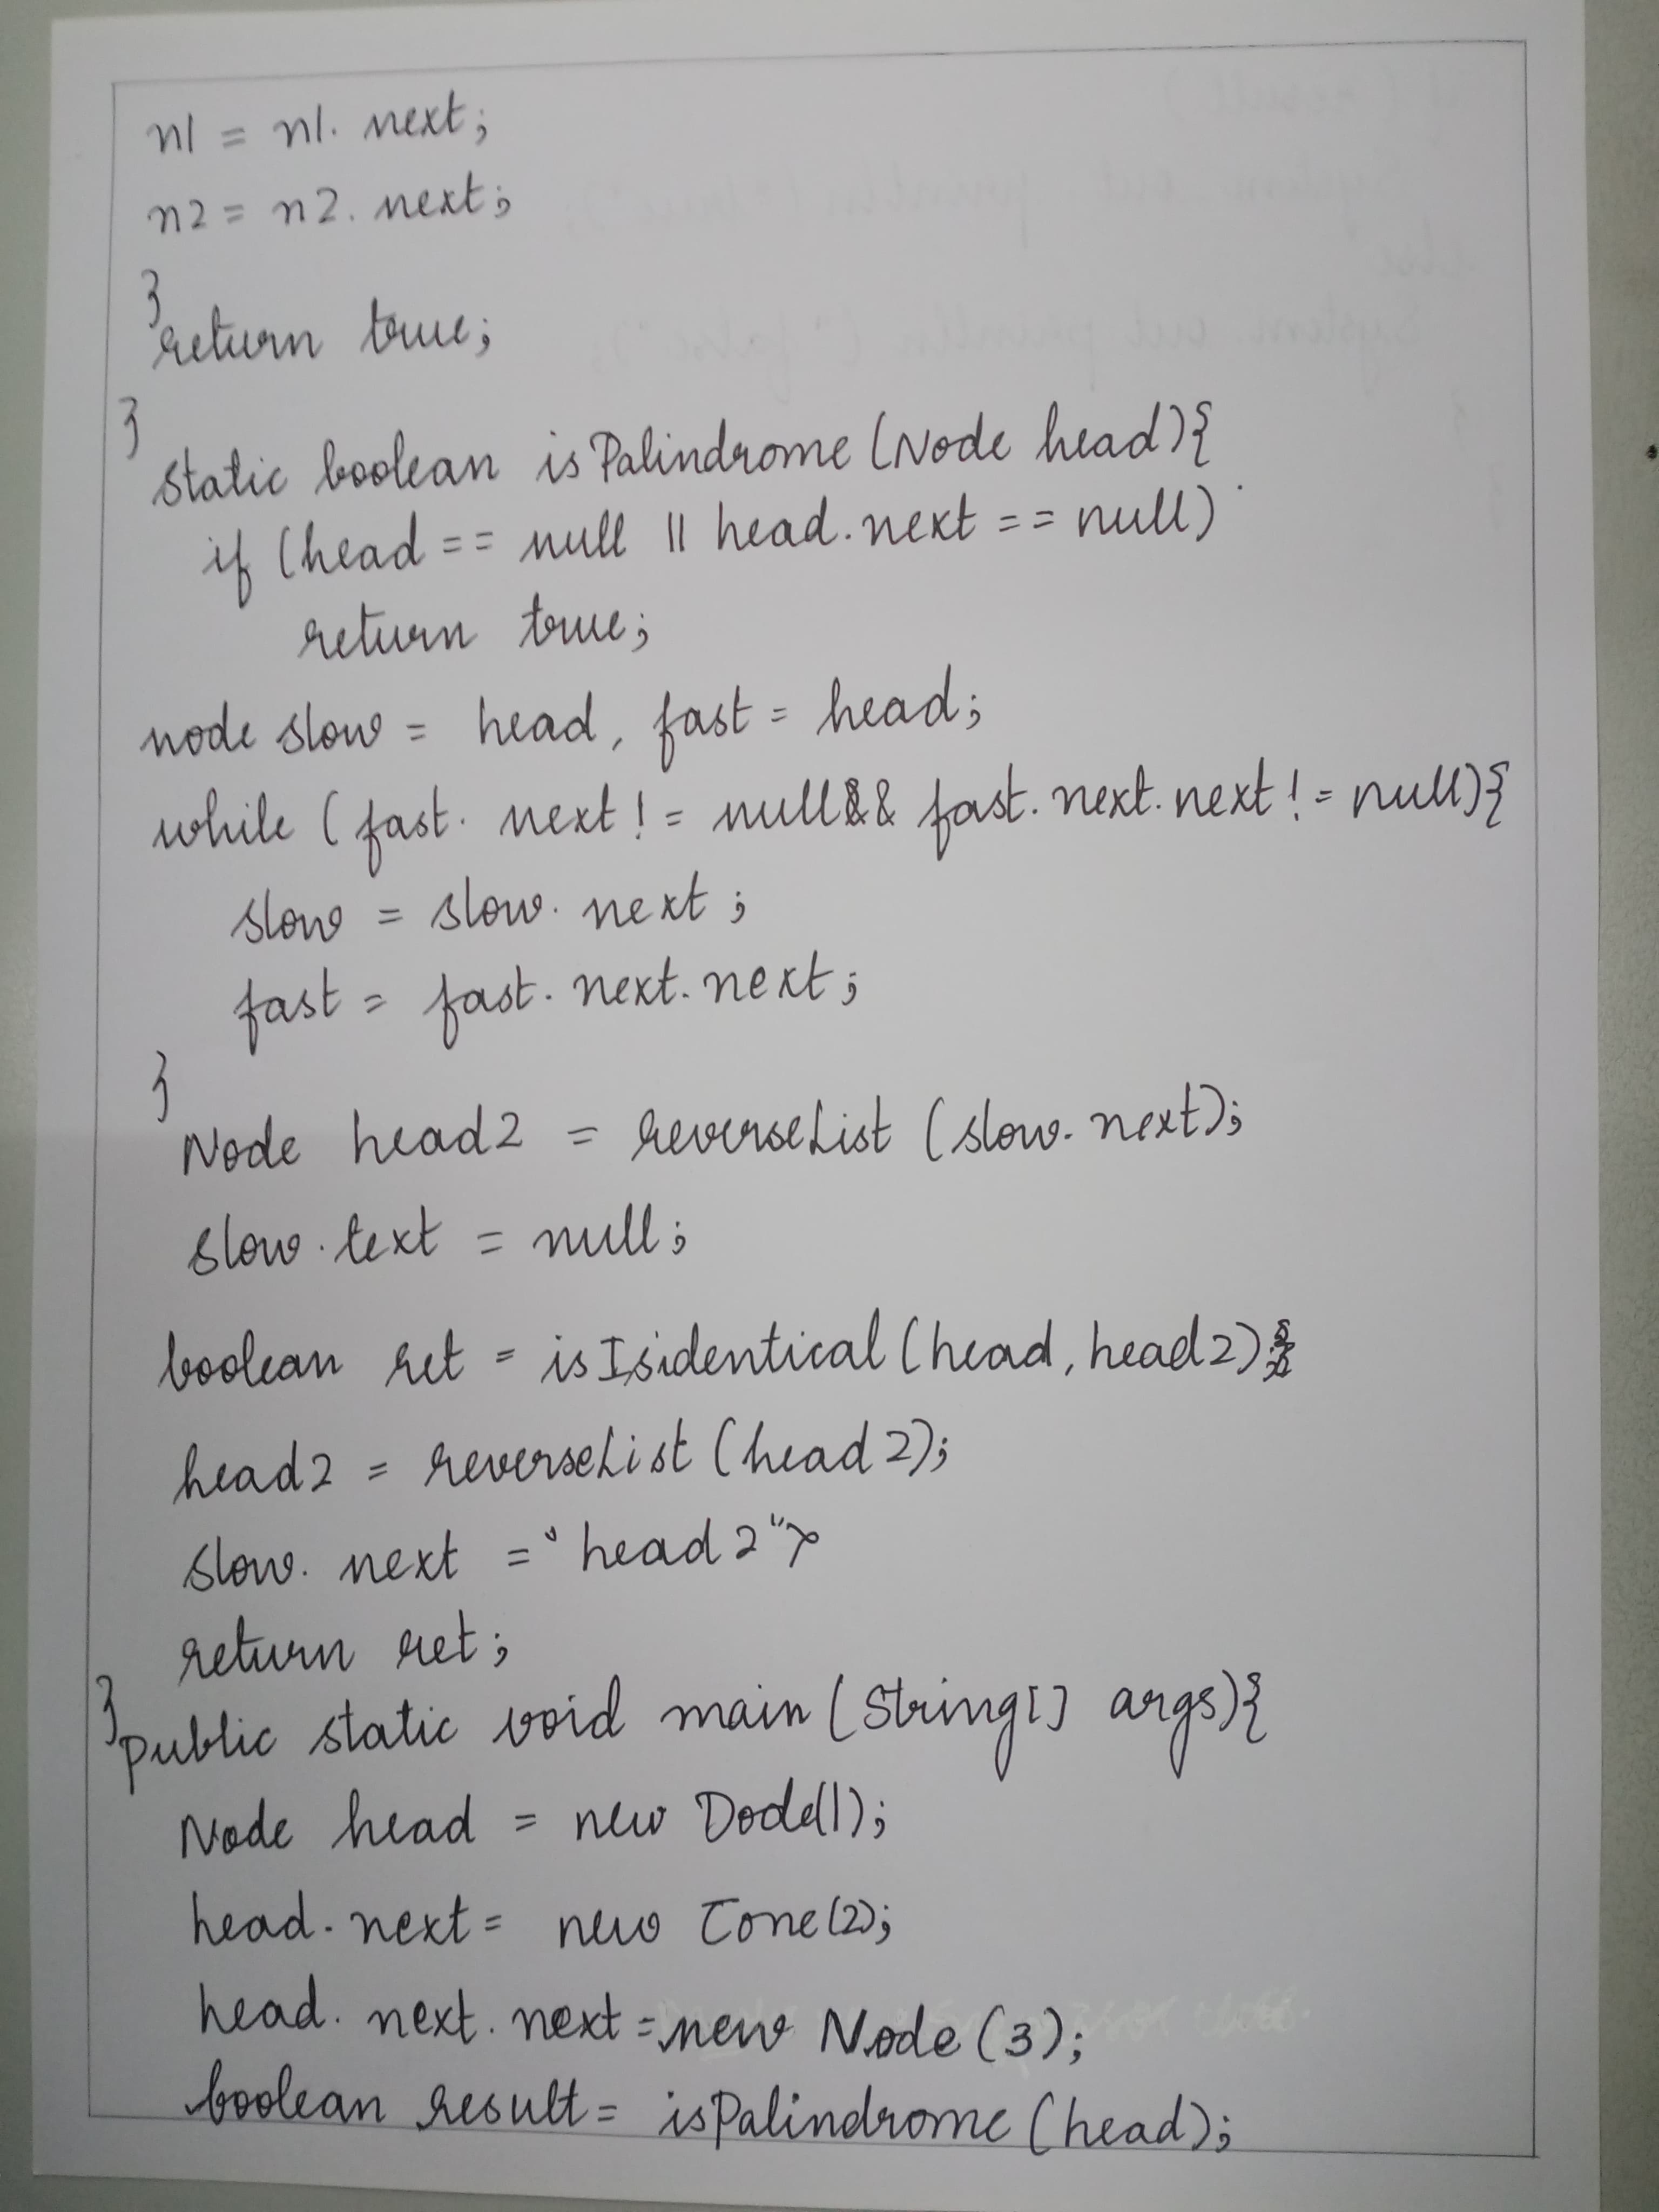 n1 = n1. next;
n2 = n2. next;
}
return true;
}
static boolean isPalindrome (Node head){
if (head == null || head.next == null)
return true;
node slow = head, fast = head;
while (fast. next != null && fast.next.next != null){
slow = slow. next;
fast = fast. next.next;
}
Node head2 = reverseList (slow. next);
slow.text = null;
boolean ret = isIsidentical (head, head2);
head2 = reverseList (head2);
slow. next = "head2";
return ret;
}
public static void main (String[] args){
Node head = new Dode(1);
head.next = new Tone(2);
head. next. next = new Node (3);
boolean result = isPalindrome (head);